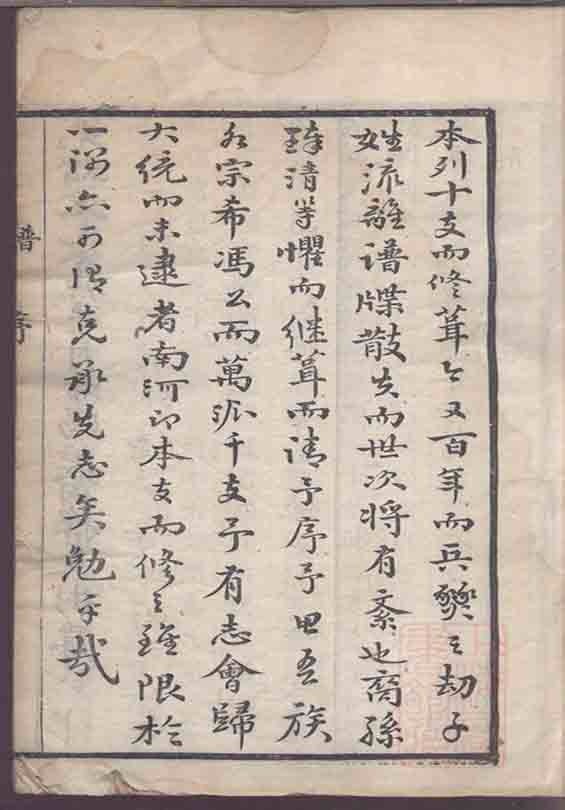 本列十支而修葺之今又百年而兵燹之劫子
姓流離譜牒散失而世次將有紊也裔孫
清等懼而継葺而請予序予思吾族
宗希馮公而萬派千支予有志會歸
大統而未逮者南河即本支而修之雖限於
一派亦可謂克承先志矣勉乎哉
譜序